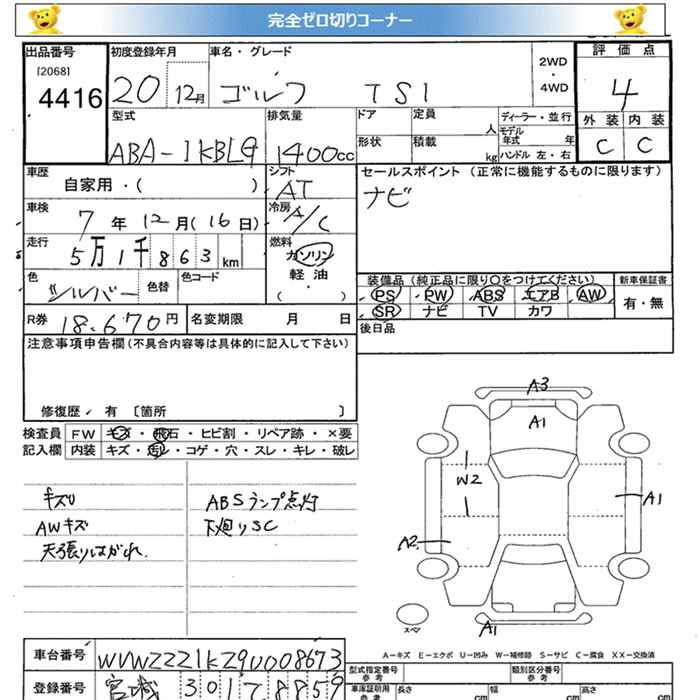 完全ゼロ切りコーナー
出品番号 初度登録年月 車名・グレード 2WD・4WD 評価点
[2068]
4416 20 12月 ゴルフ TSI 4
型式 排気量 ドア 定員 人 ディーラー・並行 外装 内装
ABA-1KBLG 1400cc 形状 積載 kg モデル年式 年 ハンドル 左・右 C C
車歴 自家用・( ) シフト AT セールスポイント(正常に機能するものに限ります)
車検 7年12月(16日) 冷房 A/C ナビ
走行 5万1千863km 燃料 ガソリン 軽油 ・ ( )
色 シルバー 色替 色コード 装備品(純正品に限り○をつけてください) 新車保証書
PS PW ABS エアB AW 有・無
SR ナビ TV カワ
R券 18.670円 名変期限 月 日 後日品
注意事項申告欄(不具合内容等は具体的に記入して下さい)
修復歴 有 〔箇所 〕
検査員 FW キズ・飛石・ヒビ割・リペア跡・×要
記入欄 内装 キズ・汚レ・コゲ・穴・スレ・キレ・破レ
キズリ ABSランプ点灯
AWキズ 下廻りSC
天張りはがれ
A3
A1
W2
A1
A2
A1
スペア
A−キズ E−エクボ U−凹み W−補修跡 S−サビ C−腐食 XX−交換済
車台番号 WVWZZZ1KZ9U008673
型式指定番号 参考 類別区分番号 参考
登録番号 宮城 301 て 8859
車庫証明用参考 長さ cm 幅 cm 高さ cm